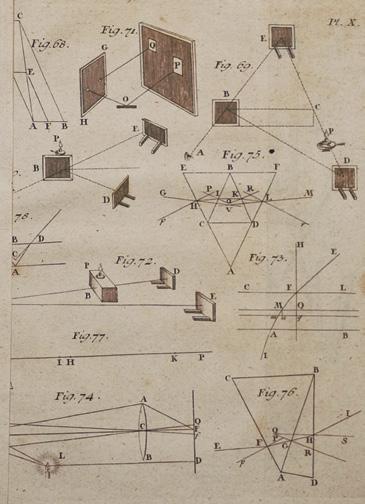 Pl. X.
C
Fig.68.
Fig.71.
G
Q
P
O
H
E
A F B
E
Fig.69.
B
C
A
P
D
P
B
E
D
Fig.75.
E B F
G P I K R L M
H
O
V
F
C D
A
78.
B D
C
A
Fig.72.
P
B
D
E
Fig.73.
H
E
C F L
M Q
A B
I
Fig.77.
I H K P
Fig.74.
A
C
B
Q
f
L D
Fig.76.
C B
I
Q
P
E F G H S
F R
A D